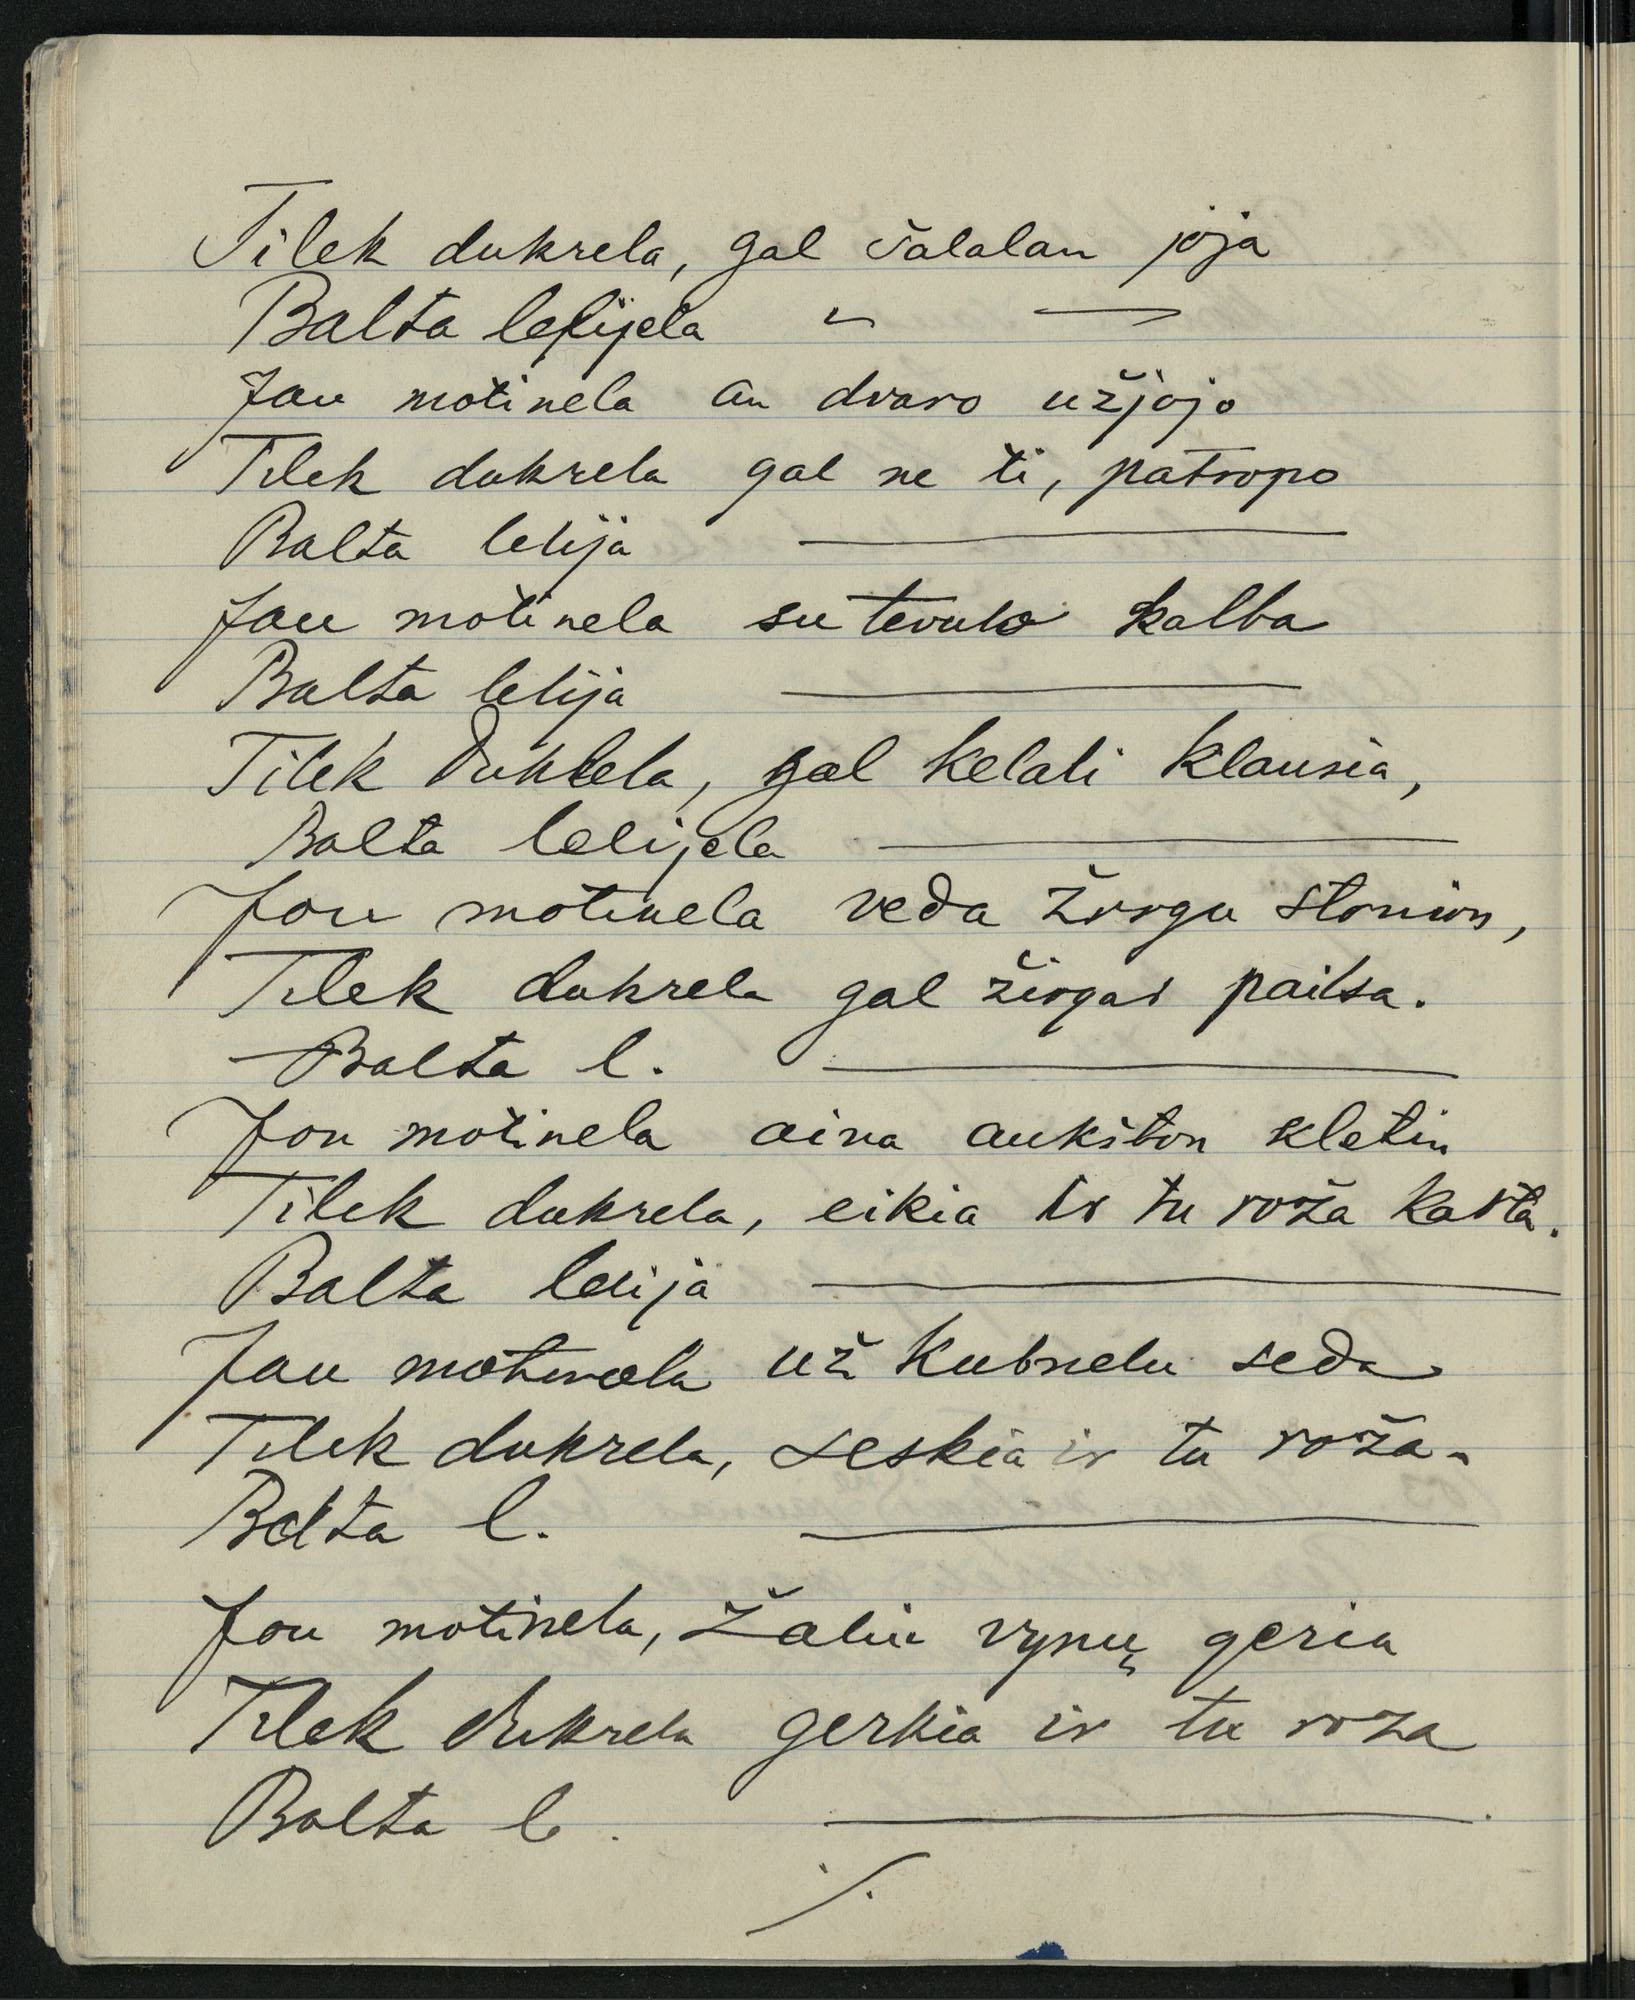 Tilek dukrela, gal šalalau joja
Balta lelijela " —
Jau motinela an dvaro užjojo
Tilek dukrela gal ne ti, patropo
Balta lelija —
Jau motinela su tevulo kalba
Balta lelija —
Tilek dukrela, gal kelali klausia,
Balta lelijela —
Jou motinela veda žirgu stonion,
Tilek dukrela gal žirgas pailsa.
Balta l. —
Jou motinela aina aukšton kletin
Tilek dukrela, eikia ir tu roža karta.
Balta lelija —
Jau motinela už kubnelu seda
Tilek dukrela, seskia ir tu roža.
Balta l. —
Jou motinela, žaliu vynų geria
Tilek dukrela gerkia ir tu roza
Balta l. —.